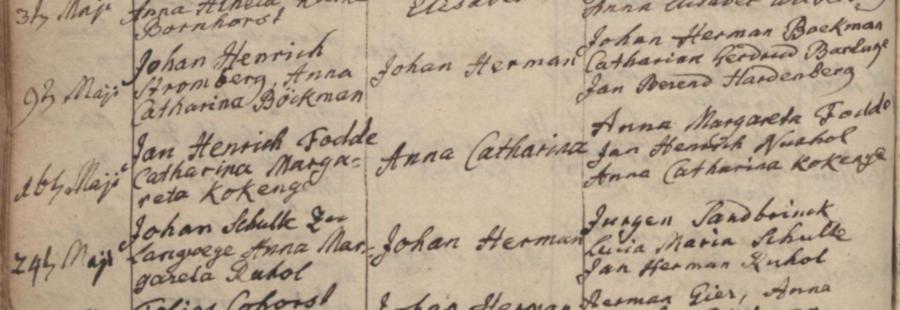 3ᵗ Maji
Anna
Bornhorst
Elisabet
Anna Elisabet
9ᵗ Maji
Johan Henrich
Stromberg, Anna
Catharina Böckman
Johan Herman
Johan Herman Boekman
Catharina Gerdrud Barlage
Jan Berend Hardenberg
16ᵗ Maji
Jan Henrich Fodde
Catharina Marga-
reta Kokenge
Anna Catharina
Anna Margareta Fodde
Jan Henrich Nuxhol
Anna Catharina Kokenge
24ᵗ Maji
Johan Schulte Zu
Langwege Anna Mar-
gareta Ruhol
Johan Herman
Jurgen Sandbrinck
Lucia Maria Schulte
Jan Herman Ruhol
Cohorst
Johan Herman
Herman Gier, Anna